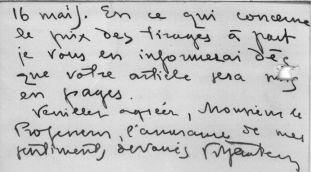 16 mai). En ce qui concerne
le prix des tirages à part
je vous en informerai dès
que votre article sera mis
en pages.
Veuillez agréer, Monsieur le
Professeur, l'assurance de mes
sentiments dévoués